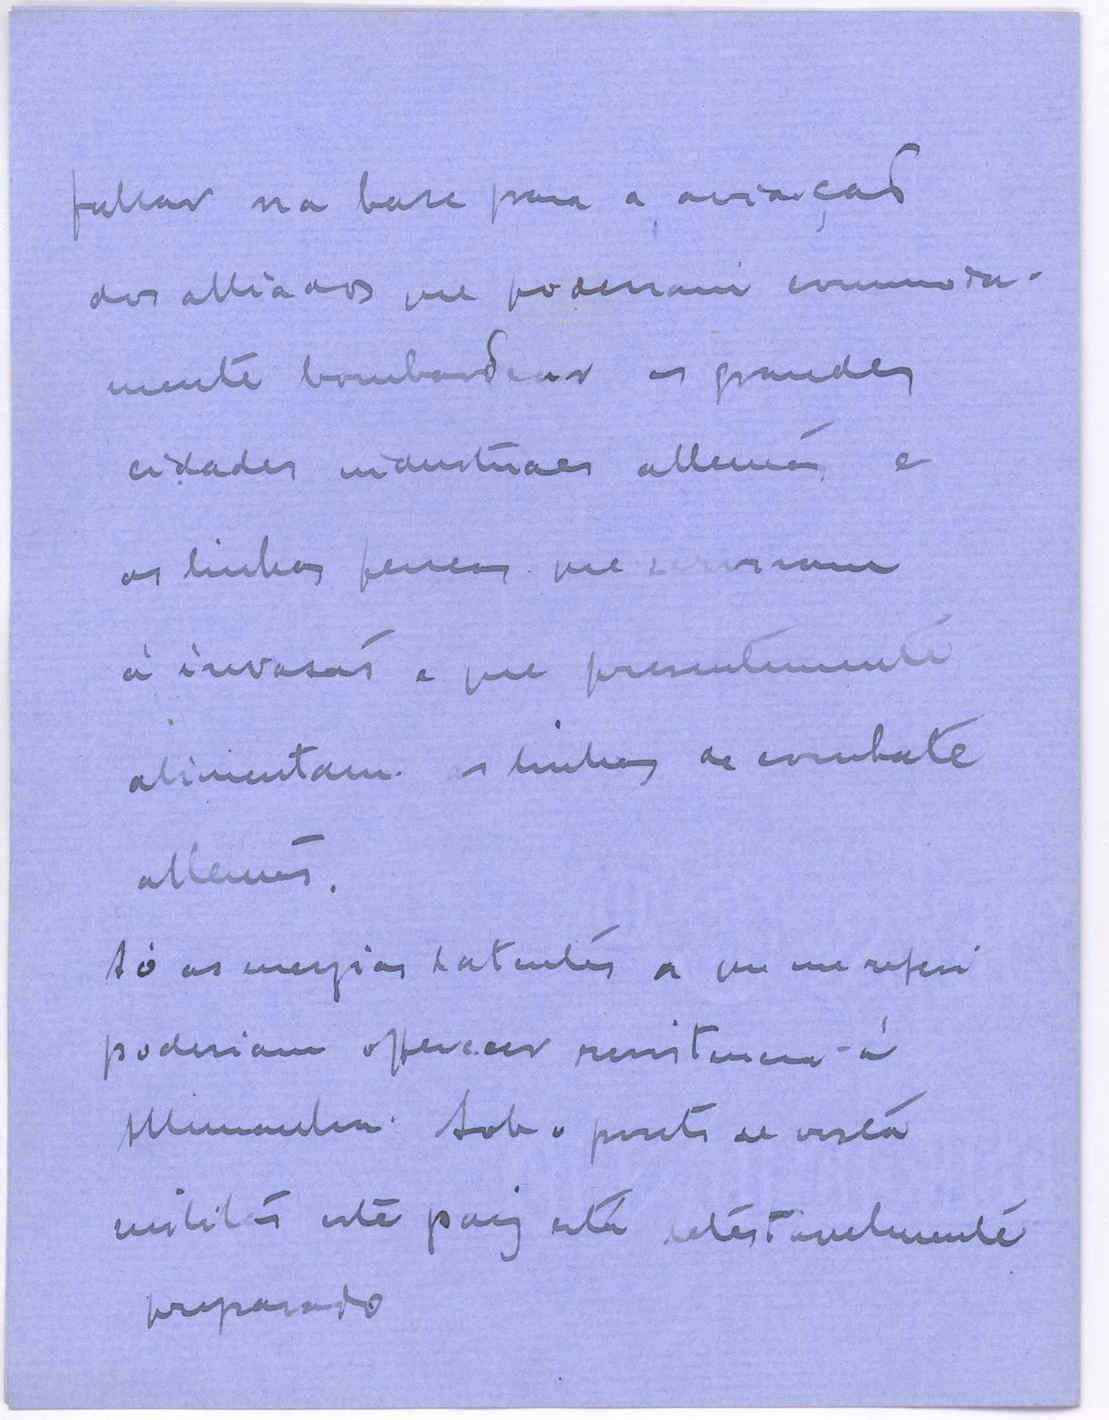 fallar na base para a aviação
dos alliados que poderiam commoda-
mente bombardear as grandes
cidades industriaes allemãs e
as linhas ferreas que serviriam
á invasão e que presentemente
alimentam as linhas de combate
allemãs.
Só as energias latentes a que me referi
poderiam offerecer resistencia á
Allemanha. Sob o ponto de vista
militar este paiz está detestavelmente
preparado